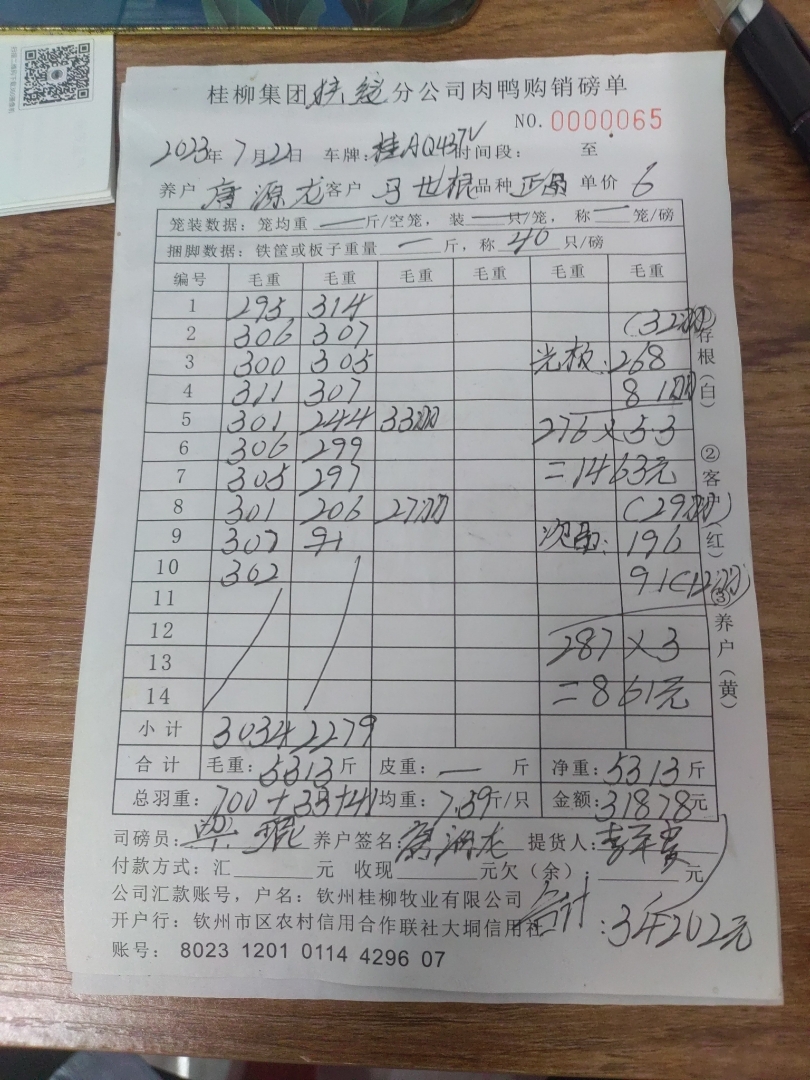 桂柳集团扶绥分公司肉鸭购销磅单
NO. 0000065
2023年7月22日 车牌:桂AQ437V时间段: 至
养户唐源龙客户马世根品种正品单价6
笼装数据:笼均重一斤/空笼,装一只/笼,称一笼/磅
捆脚数据:铁筐或板子重量一斤,称40只/磅
编号 毛重 毛重 毛重 毛重 毛重 毛重
1 295 314
2 306 307 (32羽)
3 300 305 光板:268
4 311 307 8 1羽
5 301 244 33羽 276×5.3
6 306 299
7 305 297 =1463元
8 301 206 27羽 (29羽)
9 307 91 次品:196
10 302 91(12羽)
11
12 287×3
13
14 =861元
小计 3034 2279
合计 毛重:5313斤 皮重:一 斤 净重:5313斤
总羽重:700+33+41 均重:7.59斤/只 金额:31878元
司磅员: 养户签名:唐源龙 提货人:
付款方式:汇 元 收现 元欠(余): 元
公司汇款账号,户名:钦州桂柳牧业有限公司
开户行:钦州市区农村信用合作联社大垌信用社
合计:34202元
账号: 8023 1201 0114 4296 07
存根(白) ②客户(红) ③养户(黄)